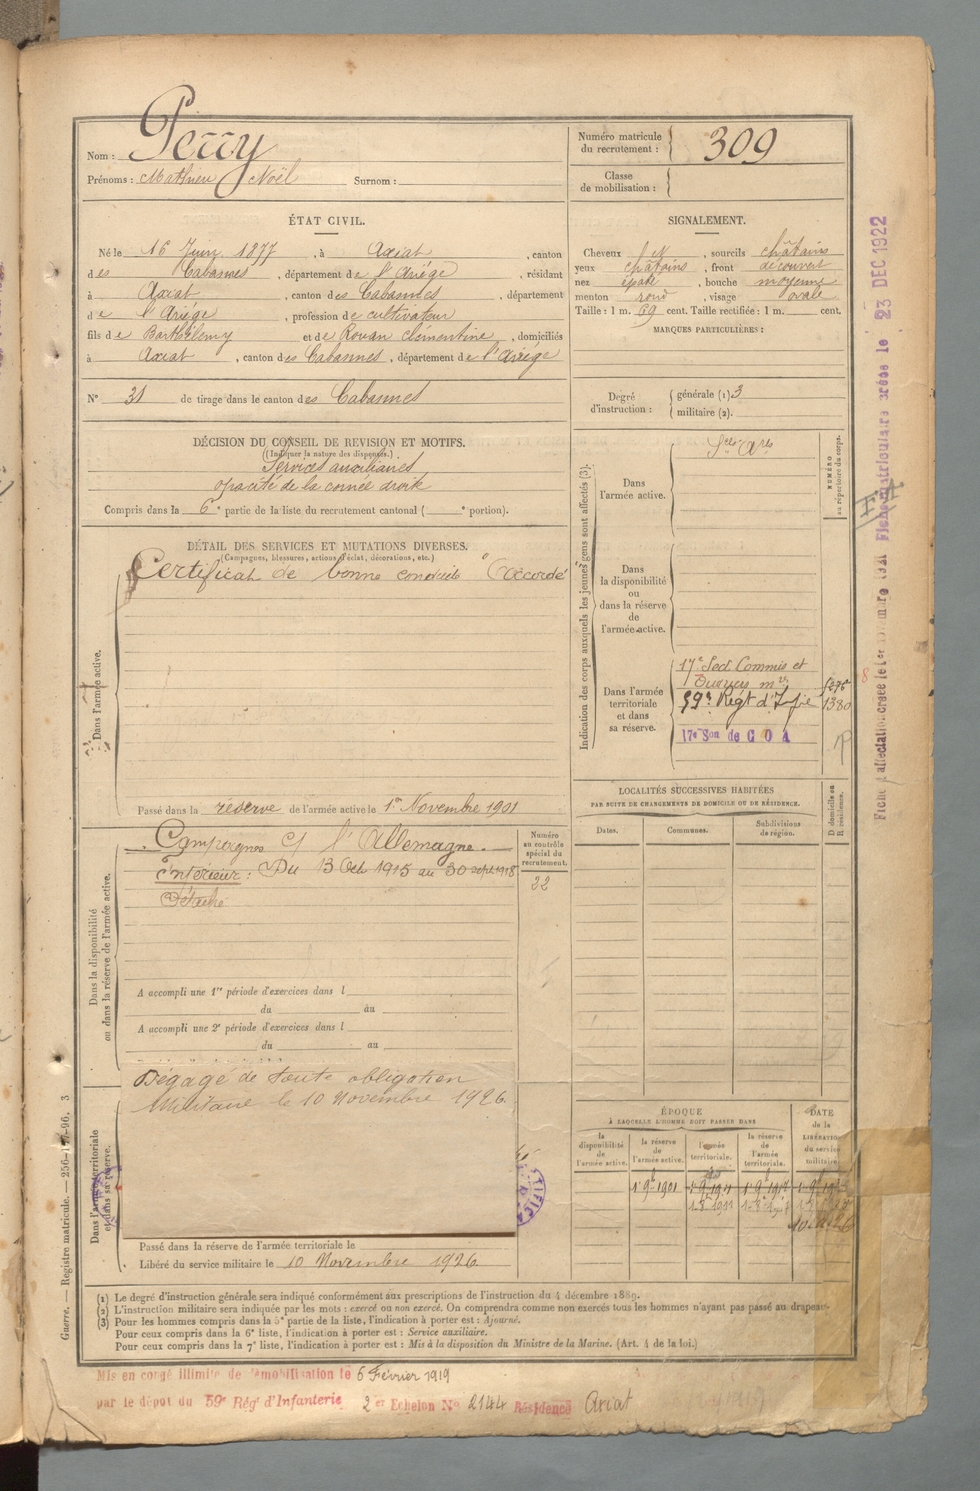 Nom : Perry
Prénoms : Mathieu Noël Surnom :
Numéro matricule du recrutement : 309
Classe de mobilisation :
ÉTAT CIVIL.
Né le 16 Juin 1877, à Axiat, canton
des Cabannes, département de l'Ariége, résidant
à Axiat, canton des Cabannes, département
de l'Ariége, profession de cultivateur
fils de Barthélemy et de Rouan Clémentine, domiciliés
à Axiat, canton des Cabannes, département de l'Ariége
N° 31 de tirage dans le canton des Cabannes
SIGNALEMENT.
Cheveux , sourcils châtains
yeux châtains, front découvert
nez épaté, bouche moyenne
menton rond, visage ovale
Taille : 1 m. 69 cent. Taille rectifiée : 1 m. cent.
MARQUES PARTICULIÈRES :
Degré d'instruction : générale (1) 3
militaire (2).
DÉCISION DU CONSEIL DE REVISION ET MOTIFS.
(Indiquer la nature des dispenses.)
Services auxiliaires
opacité de la cornée droite
Compris dans la 6e partie de la liste du recrutement cantonal ( e portion).
DÉTAIL DES SERVICES ET MUTATIONS DIVERSES.
(Campagnes, blessures, actions d'éclat, décorations, etc.)
Dans l'armée active.
Certificat de bonne conduite "Accordé
Passé dans la réserve de l'armée active le 1er Novembre 1901
Indication des corps auxquels les jeunes gens sont affectés (3).
NUMÉRO au répertoire du corps.
Dans l'armée active.
Dans la disponibilité ou dans la réserve de l'armée active.
Dans l'armée territoriale et dans sa réserve.
17e Sect. Commis et
Ouvriers
59e Régt d'Infie 1380
17e Son de C O A
LOCALITÉS SUCCESSIVES HABITÉES
PAR SUITE DE CHANGEMENTS DE DOMICILE OU DE RÉSIDENCE.
Dates. Communes. Subdivisions de région. D domicile ou R résidence.
Dans la disponibilité ou dans la réserve de l'armée active.
Campagnes c/ l'Allemagne.
Intérieur : Du 13 Oct 1915 au 30 sept 1918
Détaché
Numéro au contrôle spécial du recrutement.
22
A accompli une 1re période d'exercices dans l
du au
A accompli une 2e période d'exercices dans l
du au
Dans l'armée territoriale et dans sa réserve.
Dégagé de toute obligation
Militaire le 10 Novembre 1926.
Passé dans la réserve de l'armée territoriale le
Libéré du service militaire le 10 Novembre 1926
ÉPOQUE
À LAQUELLE L'HOMME DOIT PASSER DANS
la disponibilité de l'armée active. la réserve de l'armée active. l'armée territoriale. la réserve de l'armée territoriale.
DATE de la LIBÉRATION du service militaire.
1er 9bre 1901 1er 9bre 1911 1er 9bre 1917
(1) Le degré d'instruction générale sera indiqué conformément aux prescriptions de l'instruction du 4 décembre 1889.
(2) L'instruction militaire sera indiquée par les mots : exercé ou non exercé. On comprendra comme non exercés tous les hommes n'ayant pas passé au drapeau.
(3) Pour les hommes compris dans la 5e partie de la liste, l'indication à porter est : Ajourné.
Pour ceux compris dans la 6e liste, l'indication à porter est : Service auxiliaire.
Pour ceux compris dans la 7e liste, l'indication à porter est : Mis à la disposition du Ministre de la Marine. (Art. 4 de la loi.)
Mis en congé illimité de démobilisation le 6 Février 1919
par le dépôt du 59e Rég' d'Infanterie 2e Echelon N° 2144 Résidence Axiat
Guerre. — Registre matricule. —
Fiche matriculaire créée le 23 DEC 1922